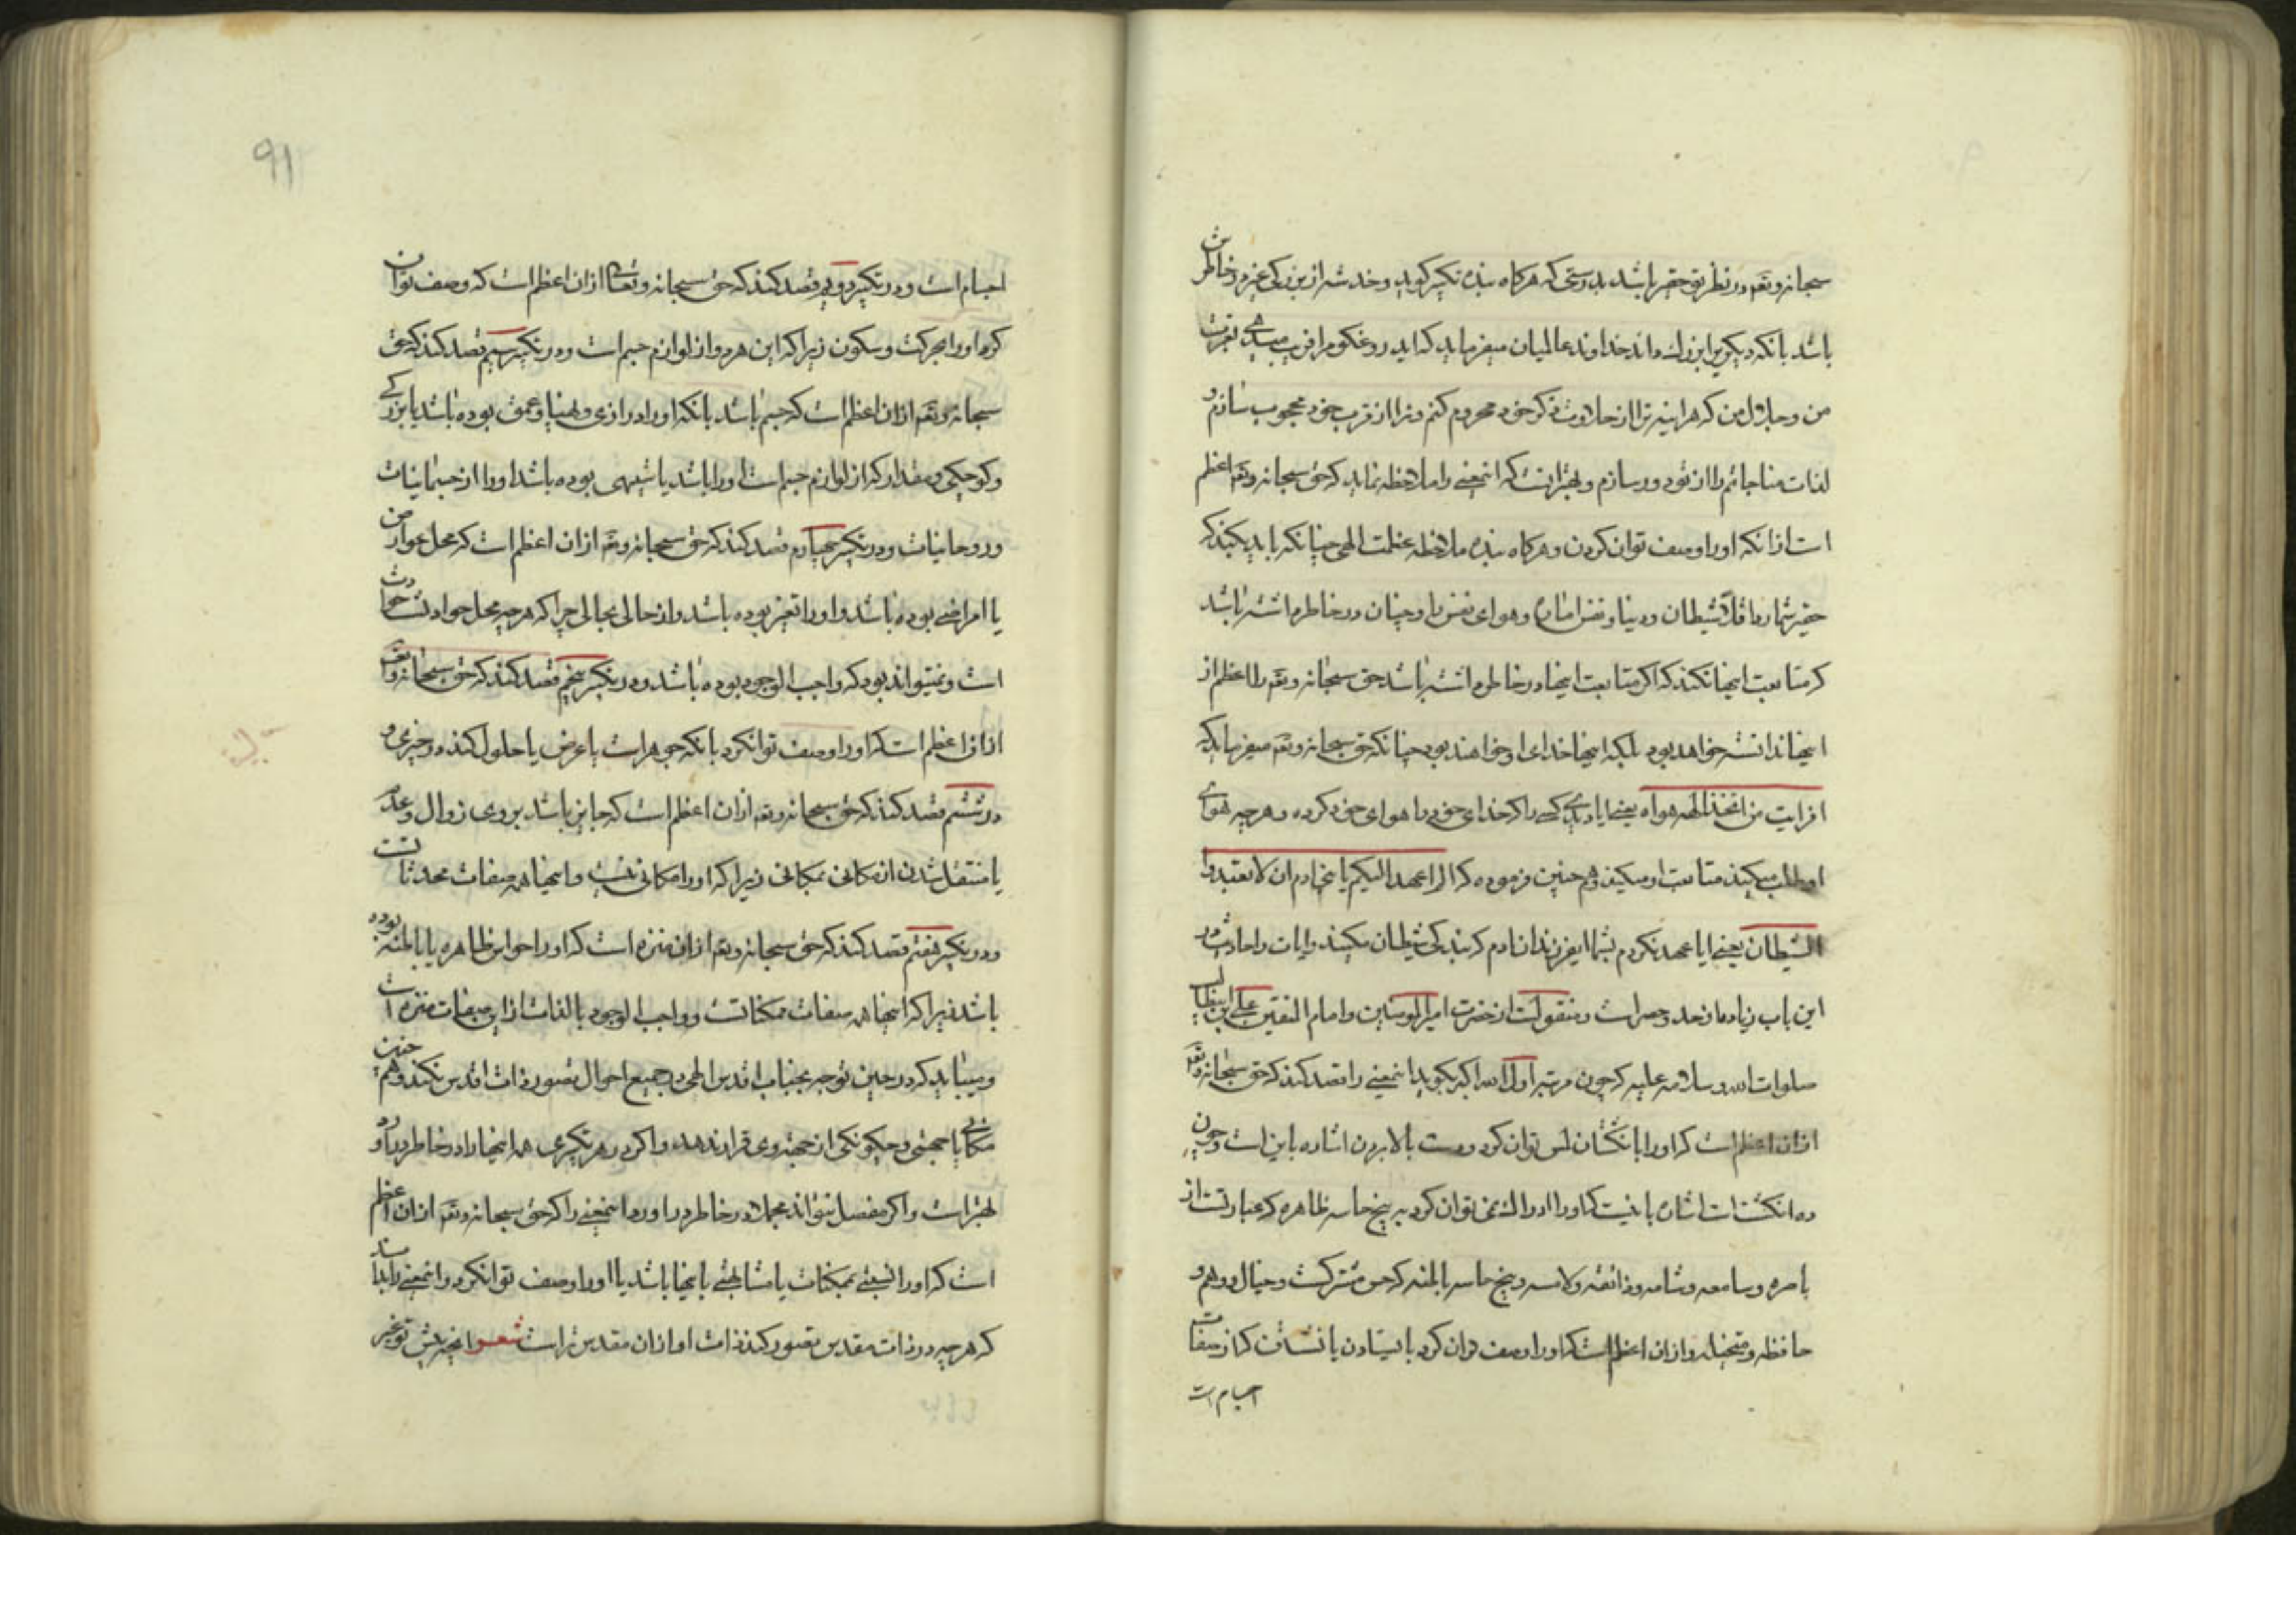 سبحانه وتعه در نظر تو حقیر باشد بدرستی که هرکاه بنده تکبیر کوید و خدشه از بزرکی غیره در خاطرش
باشد بانکه دیکریرا بزرک داند خداوند عالمیان میفرماید که اید روغکو مرا فریب میدهی بعزت
من و جلال من که هراینه ترا از حلاوت ذکر خود محروم کنم و ترا از قرب خود محجوب سازم و
لذات مناجاتم را از تو دور سازم و بهتر انست که اینمعنی را ملاحظه نماید که حق سبحانه وتعه اعظم
است از انکه او را وصف توان کردن و هرکاه بنده ملاحظه عظمت الهی چنانکه باید بکند که
حقیر شمارد ماقلا شیطان و دنیا و نفس اماره و هوای نفس را و چنان در خاطر داشته باشد
که متابعت اینها نکند که اکر متابعت اینها در خاطر داشته باشد حق سبحانه وتعه را اعظم از
اینها ندانسته خواهد بود بلکه اینها خدای او خواهند بود چنانکه حق سبحانه وتعه میفرماید که
افرایت من اتخذ الهه هواه یعنی ایا دیدی کسی را که خدای خود را هوای خود کرده و هرچه هوای
او طلب میکند متابعت او میکند و هم چنین فرموده که الم اعهد الیکم یا بنی ادم ان لا تعبدوا
الشیطان یعنی ایا عهد نکردم بشما ایفرزندان ادم که بندکی شیطان مکنید و ایات و احادیث در
این باب زیاده از حد و حصر است و منقولست از حضرت امیر المومنین و امام المتقین علی بن ابیطالب
صلوات الله و سلامه علیه که چون مرتبه اول الله اکبر بکوید اینمعنی را قصد کند که حق سبحانه وتعه
ازان اعظم است که او را بانکشتان لمس توان کرد و دست بالا بردن اشاره باین است و چون
ده انکشت است اشاره باینست که او را ادراک نمی توان کرد به پنج حاسه ظاهره که عبارتست از
باصره و سامعه و شامه و ذائقه و لامسه و پنج حاسه باطنه که حس مشترکست و خیال و وهم و
حافظه و متخیله و ازان اعظم است که او را وصف توان کرد بایستادن یا نشستن که از صفات
اجسام است
91
اجسام است و در تکبیر دویم قصد کند که حق سبحانه وتعالی ازان اعظم است که وصف توان
کرد او را بحرکت و سکون زیرا که این هردو از لوازم جسم است و در تکبیر سیم قصد کند که حق
سبحانه وتعه ازان اعظم است که جسم باشد بانکه او را درازی و پهنا و عمق بوده باشد یا بزرکی
و کوچکی و مقدار که از لوازم جسم است او را باشد یا شبیهی بوده باشد او را از جسمانیات
و روحانیات و در تکبیر چهارم قصد کند که حق سبحانه وتعه ازان اعظم است که محل عوارض
یا امراضی بوده باشد و او را تغیر بوده باشد از حالی بحالی چرا که هرچه محل حوادث حوادث
است و نمیتواند بود که واجب الوجود بوده باشد و در تکبیر پنجم قصد کند که حق سبحانه وتعه
ازان اعظم است که او را وصف توانکرد بانکه جوهر است یا عرض یا حلول کند در چیزی و
در ششم قصد کند که حق سبحانه وتعه ازان اعظم است که جایز باشد بروی زوال و عدم
یا منتقل شدن از مکانی بمکانی زیرا که او را مکانی نیست و اینها همه صفات محدثاتست
و در تکبیر هفتم قصد کند که حق سبحانه وتعه ازان منزه است که او را حواس ظاهره یا باطنه بوده
باشد زیرا که اینها همه صفات ممکناتست و واجب الوجود بالذات ازین صفات منزه است
و میباید که در حین توجه بجناب اقدس الهی در جمیع احوال تصور ذات اقدس نکند و هم چنین
مکانی یا جهتی و چکونکی از جهة وی قرار ندهد و اکر در هر تکبیری همه اینها را در خاطر دراورد
بهتر است و اکر مفصل نتواند مجملا در خاطر دراورد اینمعنی را که حق سبحانه وتعه ازان اعظم
است که او را نسبتی بممکنات یا مشابهتی باینها باشد یا او را وصف توانکرد و اینمعنی را بداند
که هرچه در ذات مقدس تصور کند ذات او ازان مقدس تر است شعر انچه پیش تو غیر